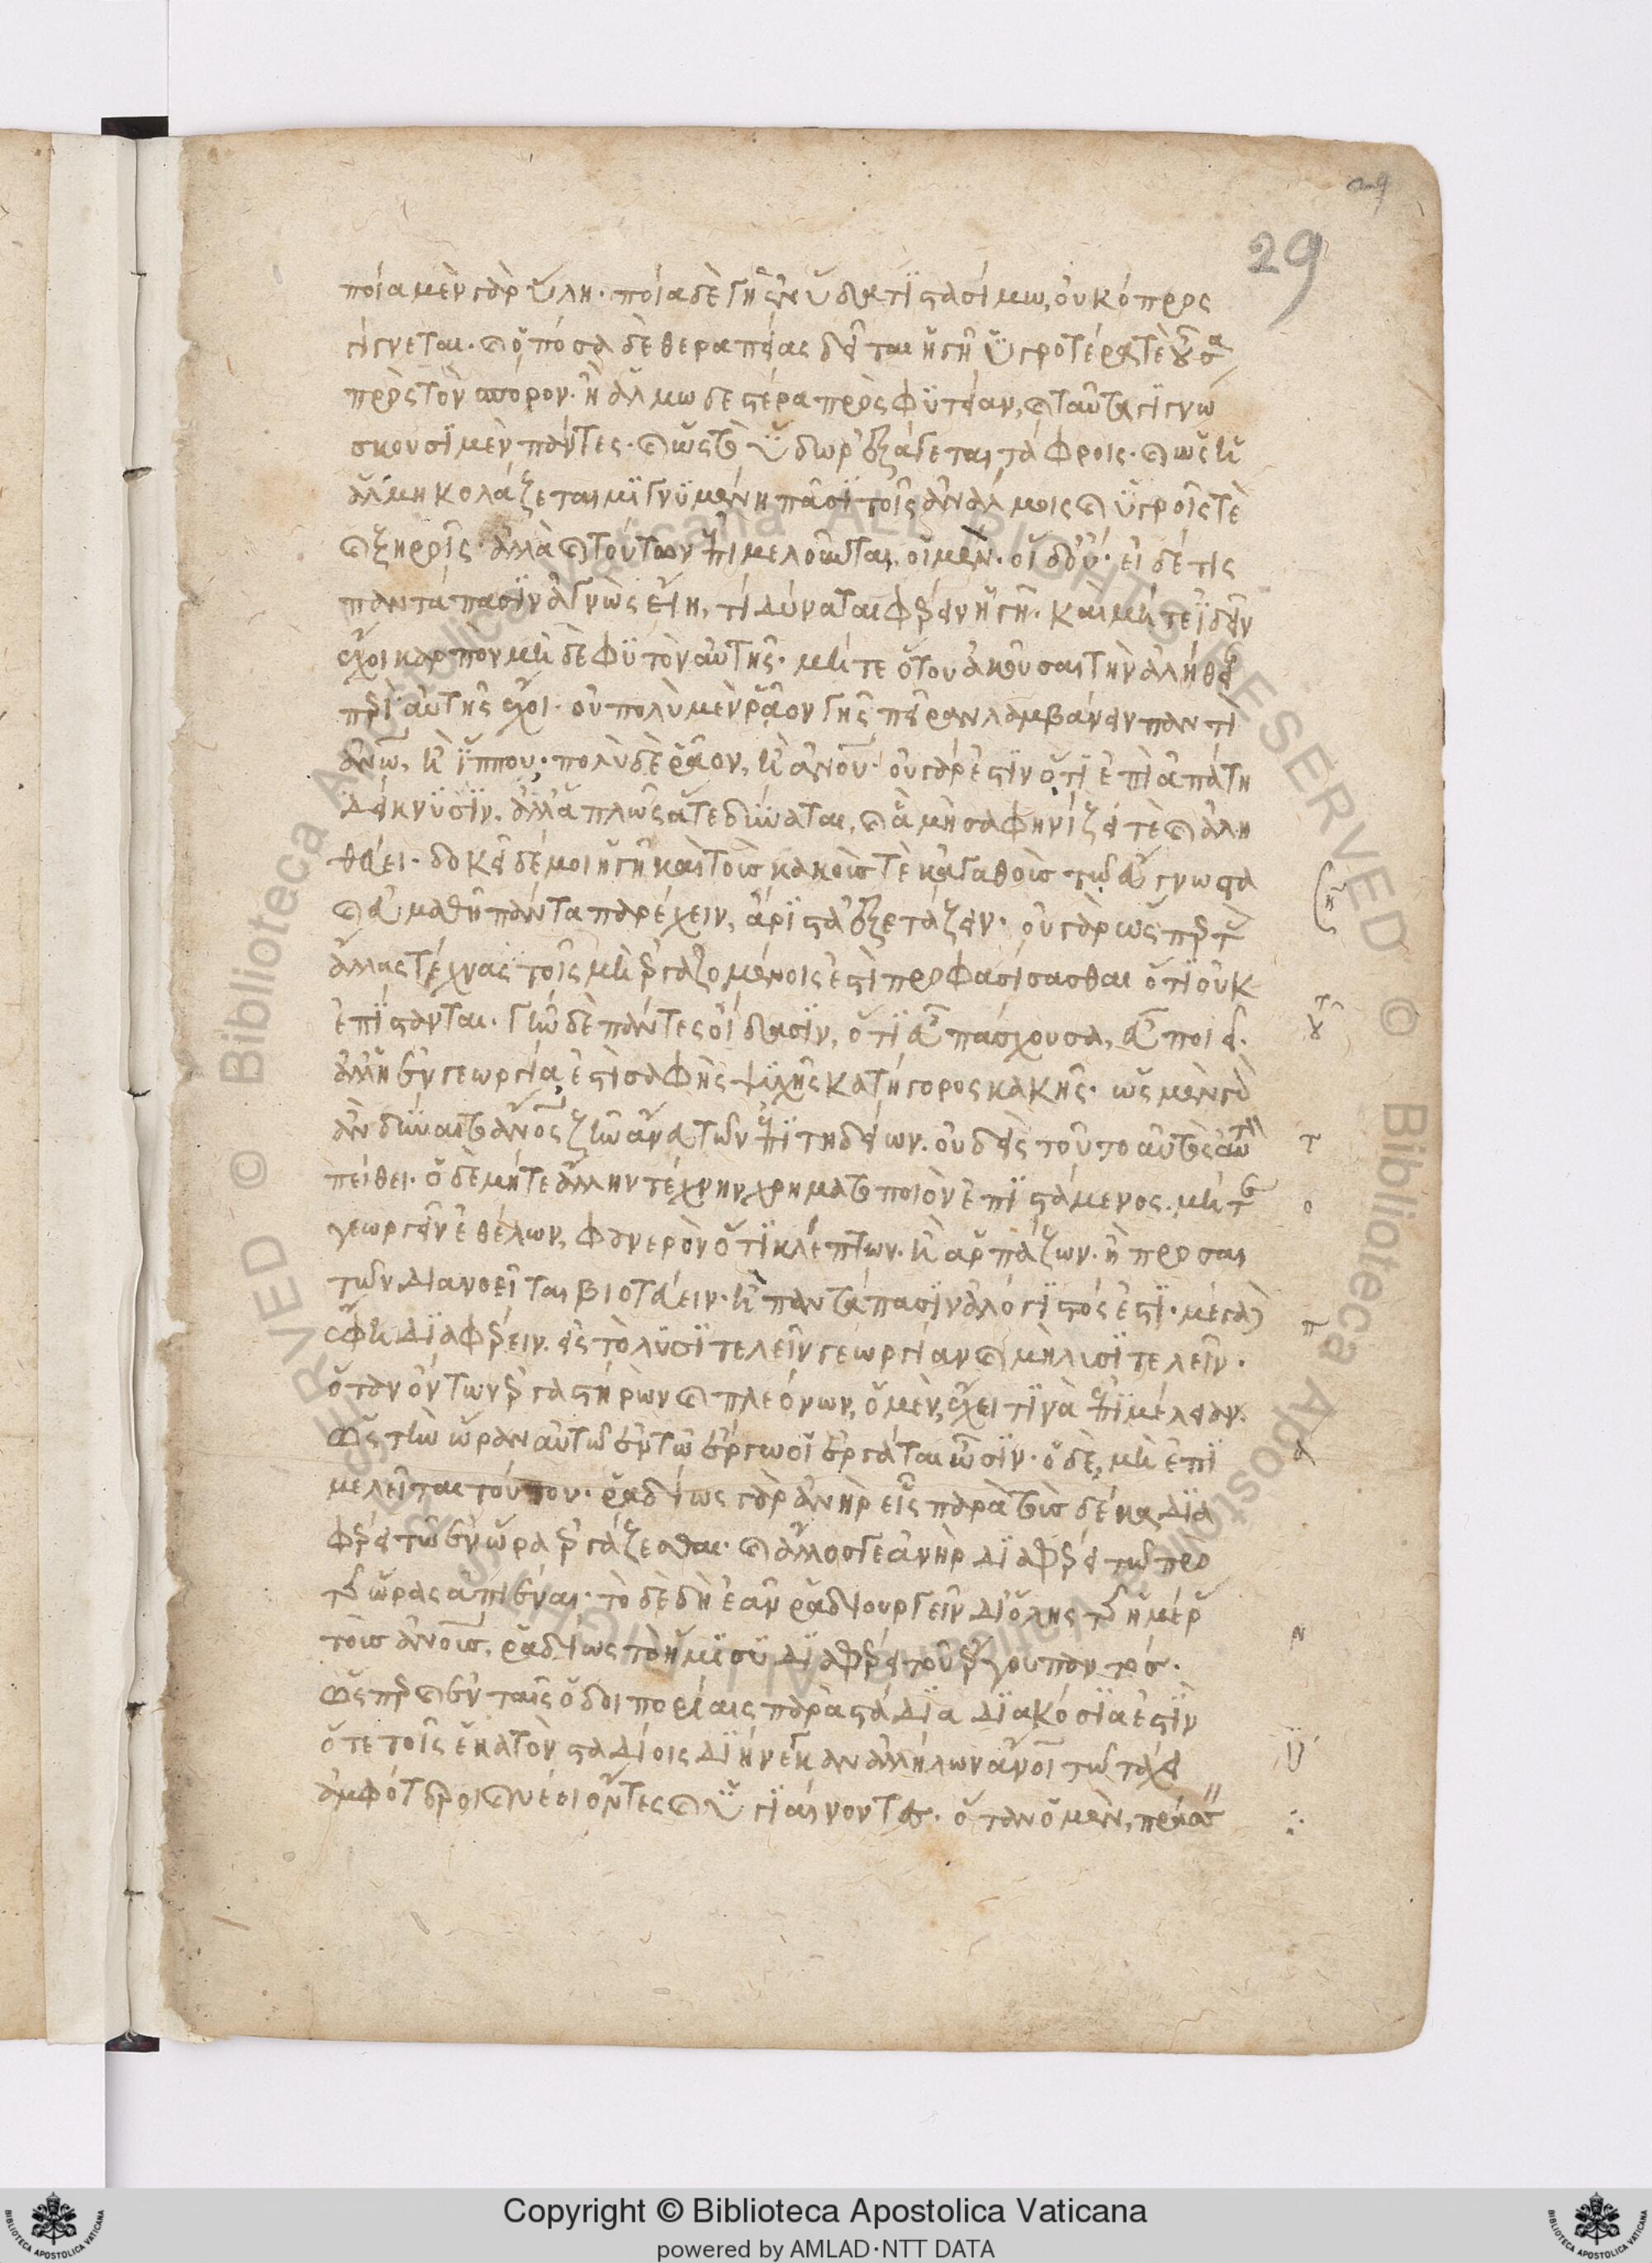 29
ποία μὲν γὰρ ὕλη· ποία δὲ γῆ ἐν ὕδατι στασίμω, οὐ κόπρος
γίγνεται· καὶ ὁπόσα δὲ θεραπείας δεῖται ἡ γῆ ὑγροτέρα τὲ οὖσα
πρὸς τὸν σπόρον· ἢ ἁλμωδεστέρα πρὸς φυτείαν, καὶ ταῦτα γιγνώ
σκουσι μὲν πάντες· καὶ ὡς τὸ ὕδωρ ἐξάγεται τάφροις· καὶ ὡς ἡ
ἅλμη κολάζεται μιγνυμένη πᾶσι τοῖς ἀνάλμοις καὶ ὑγροῖς τὲ
καὶ ξηροῖς· ἀλλὰ καὶ τούτων ἐπιμελοῦνται, οἱ μὲν· οἱ δ' οὔ· εἰ δέ τις
παντάπασιν ἀγνὼς εἴη, τί δύναται φέρειν ἡ γῆ· καὶ μήτε ἰδεῖν
ἔχοι καρπὸν μὴ δὲ φυτὸν αὐτῆς· μήτε ὅτου ἀκοῦσαι τὴν ἀλήθει
περὶ αὐτῆς ἔχοι· οὐ πολὺ μὲν ῥᾶον γῆς πεῖραν λαμβάνειν παντὶ
ἀνω, ἢ ἵππου· πολὺ δὲ ῥᾶον, ἢ ἀνου· οὐ γὰρ ἔστιν ὅτι ἐπὶ ἀπάτη
δείκνυσιν. ἀλλ' ἁπλῶς ἅτε δύναται, καὶ ἃ μὴ σαφηνίζει τὲ καὶ ἀλη
θεύει· δοκεῖ δέ μοι ἡ γῆ καὶ τοὺς κακούς τε κἀγαθοὺς τῷ εὔγνωστα
καὶ εὐμαθῆ πάντα παρέχειν, ἄριστα ἐξετάζειν· οὐ γὰρ ὥσπερ τὰς
ἄλλας τέχνας τοῖς μὴ ἐργαζομένοις ἔστι προφασίσασθαι ὅτι οὐκ
ἐπίστανται· γῆν δὲ πάντες οἴδασιν, ὅτι εὖ πάσχουσα, εὖ ποιεῖ·
ἀλλ' ἡ ἐν γεωργία ἐστὶ σαφὴς ψυχῆς κατήγορος κακῆς· ὡς μὲν γὰρ
ἂν δύναιτο ἄνος ζῆν ἄνευ τῶν ἐπιτηδείων. οὐδεὶς τοῦτο αὐτὸς αὑτὸν
πείθει· ὁ δὲ μήτε ἄλλην τέχνην χρηματοποιὸν ἐπιστάμενος. μήτε
γεωργεῖν ἐθέλων, φανερὸν ὅτι κλέπτων· ἢ ἁρπάζων· ἢ προσαι
τῶν διανοεῖται βιοτεύειν· ἢ παντάπασιν ἀλόγιστός ἐστι· μέγα δὲ
ἔφη διαφέρειν. εἰς τὸ λυσιτελεῖν γεωργίαν καὶ μὴ λυσιτελεῖν·
ὅταν ὄντων ἐργαστήρων καὶ πλεόνων, ὁ μὲν, ἔχει τινὰ ἐπιμέλειαν.
ὡς τὴν ὥραν αὐτῶ ἐν τῶ ἔργω οἱ ἐργάται ὦσιν· ὁ δὲ, μὴ ἐπι
μελεῖται τούτου· ῥαδίως γὰρ ἀνὴρ εἷς παρὰ τοὺς δέκα δια
φέρει τῶ ἐν ὥρα ἐργάζεσθαι· καὶ ἄλλος γε ἀνὴρ διαφέρει τῶ πρὸ
τῆς ὥρας ἀπιέναι· τὸ δὲ δὴ ἐᾶν ῥαδιουργεῖν δι' ὅλης τῆς ἡμέρας
τοὺς ἀνους, ῥαδίως τὸ ἥμισυ διαφέρει τοῦ ἔργου παντός·
ὥσπερ καὶ ἐν ταῖς ὁδοιπορίαις παρὰ στάδια διακόσια ἔστιν
ὅτε τοῖς ἑκατὸν σταδίοις διήνεγκαν ἀλλήλων ἄνοι τῶ τάχει
ἀμφότεροι καὶ νέοι ὄντες καὶ ὑγιαίνοντες· ὅταν ὁ μὲν, πράσση
Copyright © Biblioteca Apostolica Vaticana
powered by AMLAD·NTT DATA